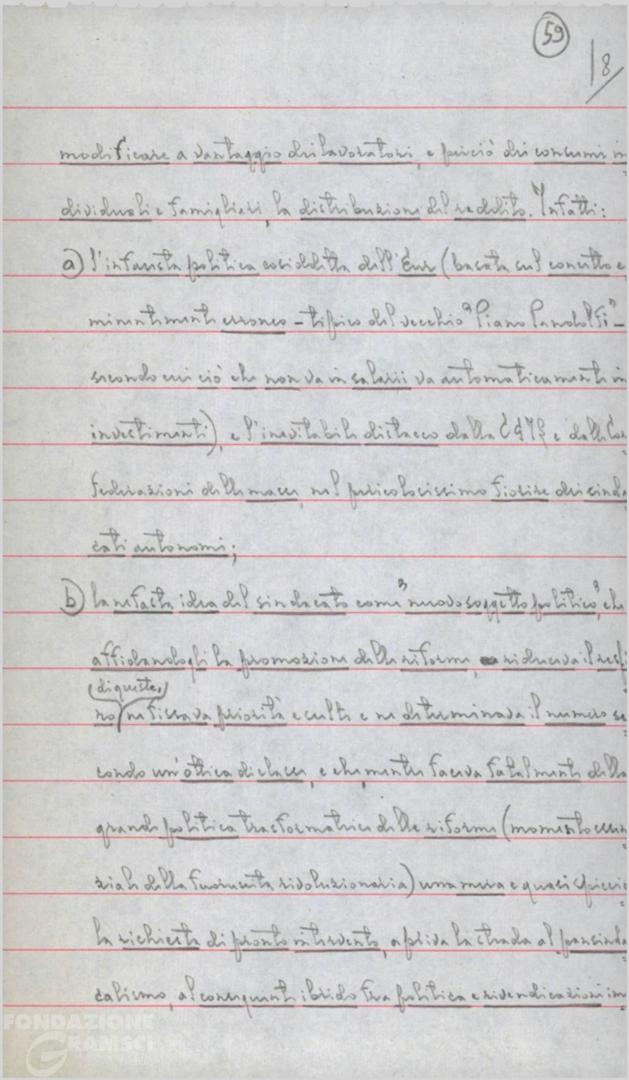 59
18/
modificare a vantaggio dei lavoratori, e perciò dei consumi in
dividuali e famigliari, la distribuzione del reddito. Infatti:
a) l'infausta politica cosiddetta dell'Eur (basata sul concetto e
minentemente erroneo – tipico del vecchio "Piano Pandolfi" –
secondo cui ciò che non va in salari va automaticamente in
investimenti), e l'inevitabile distacco dalla e dalle Con
federazioni delle masse, nel pericolosissimo fiorire dei sinda
cati autonomi;
b) la nefasta idea del sindacato come "nuovo soggetto politico", che
affidandogli la promozione delle riforme, riduceva il
(di queste,)
no ne fissava priorità e scelte e ne determinava il numero se
condo un'ottica di classe, e che, mentre faceva fatalmente della
grande politica trasformatrice delle riforme (momento essen
ziale della fuoriuscita rivoluzionaria) una mera e quasi spiccio
la richiesta di pronto intervento, apriva la strada al pansinda
calismo, al conseguente ibrido fra politica e rivendicazioni im
FONDAZIONE
GRAMSCI